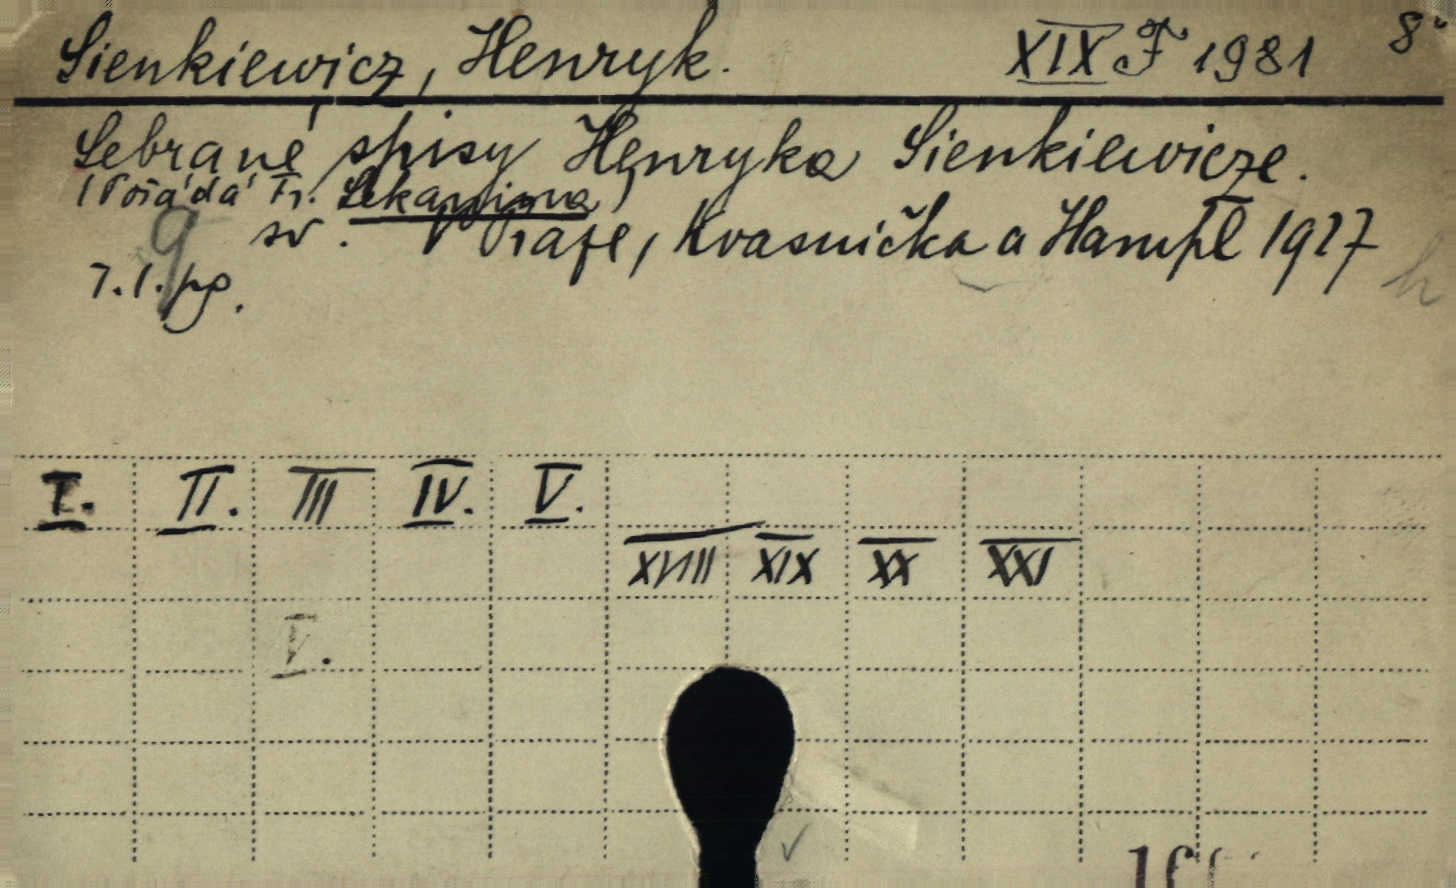 Sienkiewicz, Henryk. XIX F 1981 8°
Sebrané spisy Henryka Sienkiewicze.
(Pořádá Fr. Sekanina)
sv. V Praze, Kvasnička a Hampl 1927
9
7.1.pg.
h
I. II. III IV. V.
XVIII XIX XX XXI
V.